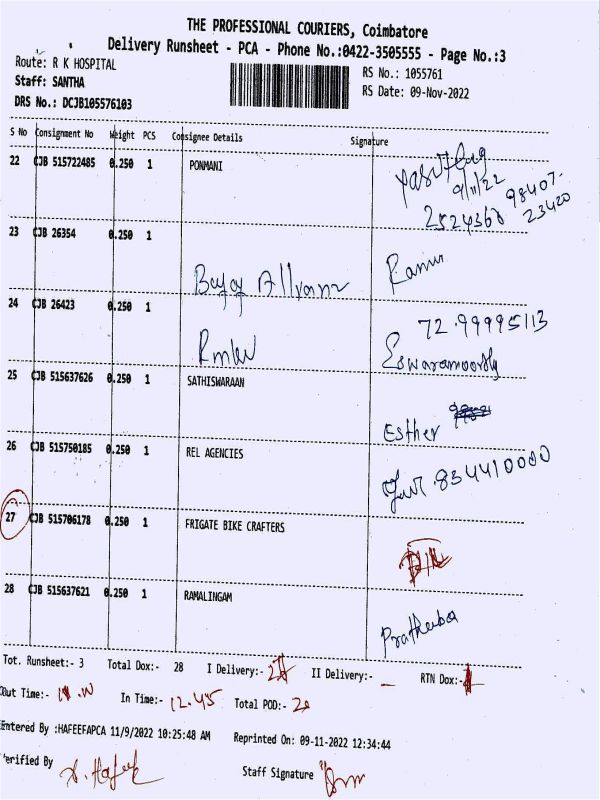 THE PROFESSIONAL COURIERS, Coimbatore
Delivery Runsheet - PCA - Phone No.:0422-3505555 - Page No.:3
Route: R K HOSPITAL
RS No.: 1055761
Staff: SANTHA
RS Date: 09-Nov-2022
DRS No.: DCJB105576103
S No Consignment No Weight PCS Consignee Details Signature
22 CJB 515722485 0.250 1 PONMANI
9/11/22
98407-
23420
2524368
23 CJB 26354 0.250 1
Bajaj Allianz
24 CJB 26423 0.250 1
72.99995113
Eswaramoorthy
25 CJB 515637626 0.250 1 SATHISWARAAN
Esther
26 CJB 515750185 0.250 1 REL AGENCIES
8344110000
27 CJB 515706178 0.250 1 FRIGATE BIKE CRAFTERS
28 CJB 515637621 0.250 1 RAMALINGAM
Tot. Runsheet:- 3 Total Dox:- 28 I Delivery:- II Delivery:- _ RTN Dox:-
Out Time:- In Time:- 12.45 Total POD:-
Entered By :HAFEEFAPCA 11/9/2022 10:25:48 AM Reprinted On: 09-11-2022 12:34:44
Verified By
Staff Signature